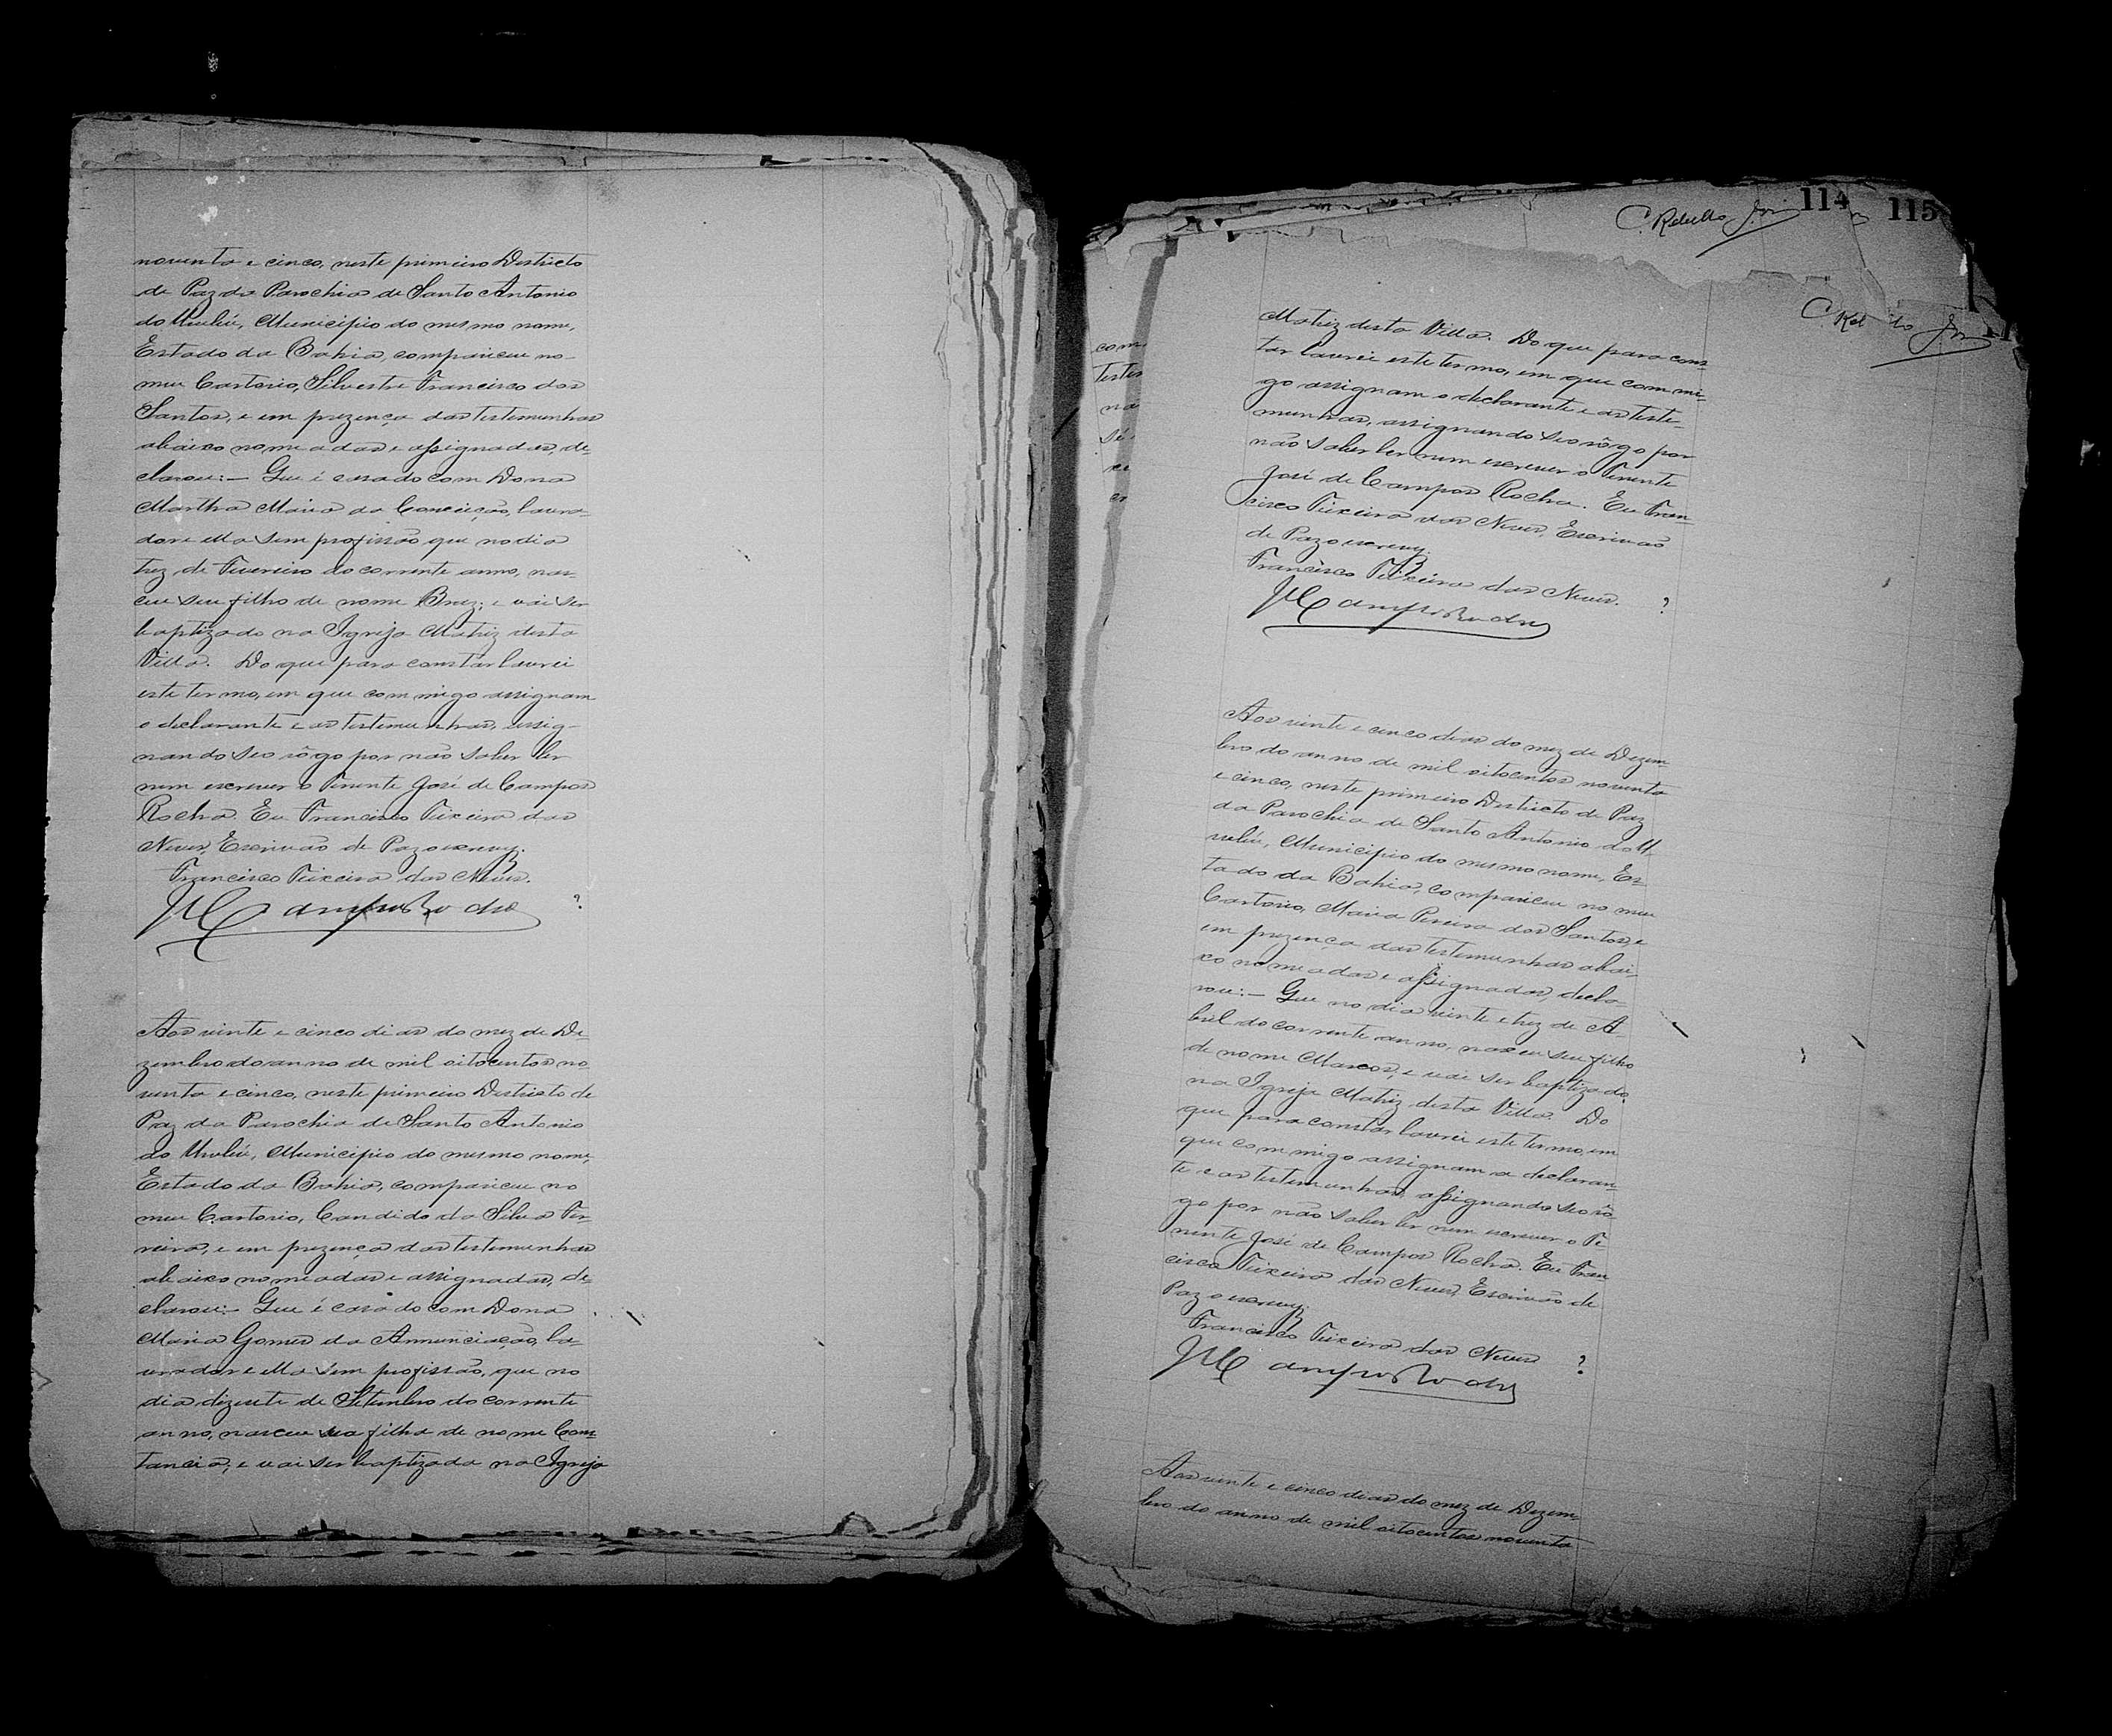 noventa e cinco, neste primeiro Districto
de Paz da Parochia de Santo Antonio
do Urubú, Municipio do mesmo nome,
Estado da Bahia, compareceu no
meu Cartorio, Silvestre Francisco dos
Santos, e em prezença das testemunhas
abaixo nomeadas e assignadas, de-
clarou:- Que é casado com Dona
Martha Maria da Conceição, lavra-
dor e ella sem profissão que no dia
trez de Fevereiro do corrente anno, nas-
ceu seu filho de nome Braz; e vai ser
baptizado na Igreja Matriz desta
Villa. Do que para constar lavrei
este termo, em que commigo assignam
o declarante e as testemunhas, assig-
nando seo rôgo por não saber ler
nem escrever o Tenente José de Campos
Rocha. Eu Francisco Teixeira das
Neves, Escrivão de Paz o escrevy.
Francisco Teixeira das Neves.
JCamposRocha ?
Aos vinte e cinco dias do mez de De-
zembro do anno de mil oitocentos no-
venta e cinco, neste primeiro Districto de
Paz da Parochia de Santo Antonio
do Urubú, Municipio do mesmo nome,
Estado da Bahia, compareceu no
meu Cartorio, Candido da Silva Fer-
reira, e em prezença das testemunhas
abaixo nomeadas e assignadas, de-
clarou:- Que é casado com Dona
Maria Gomes da Annunciação, la-
vrador e ella sem profissão, que no
dia dezesete de Setembro do corrente
anno, nasceu sua filha de nome Cons-
tancia; e vai ser baptizada na Igreja
114
115
C. Rebello Jor
C. Reb llo Jor
com
testes
na
sé
Matriz desta Villa. Do que para cons-
tar lavrei este termo, em que commi-
go assignam o declarante e as teste-
munhas, assignando seo rôgo por
não saber ler nem escrever o Tenente
José de Campos Rocha. Eu Fran-
cisco Teixeira das Neves, Escrivão
de Paz o escrevy.
Francisco Teixeira das Neves. ?
JCamposRocha
Aos vinte e cinco dias do mez de Dezem-
bro do anno de mil oitocentos noventa
e cinco, neste primeiro Districto de Paz
da Parochia de Santo Antonio do U-
rubú, Municipio do mesmo nome, Es-
tado da Bahia, compareceu no meu
Cartorio, Maria Pereira dos Santos, e
em prezença das testemunhas abai-
xo nomeadas e assignadas, decla-
rou:- Que no dia vinte e trez de A-
bril do corrente anno, nasceu seu filho
de nome Marcos, e vai ser baptizado
na Igreja Matriz desta Villa. Do
que para constar lavrei este termo, em
que commigo assignam a declaran-
te e as testemunhas, assignando seo rô-
go por não saber ler nem escrever o Te-
nente José de Campos Rocha. Eu Fran-
cisco Teixeira das Neves, Escrivão de
Paz o escrevy.
Francisco Teixeira das Neves ?
JCamposRocha
Aos vinte e cinco dias do mez de Dezem-
bro do anno de mil oitocentos noventa